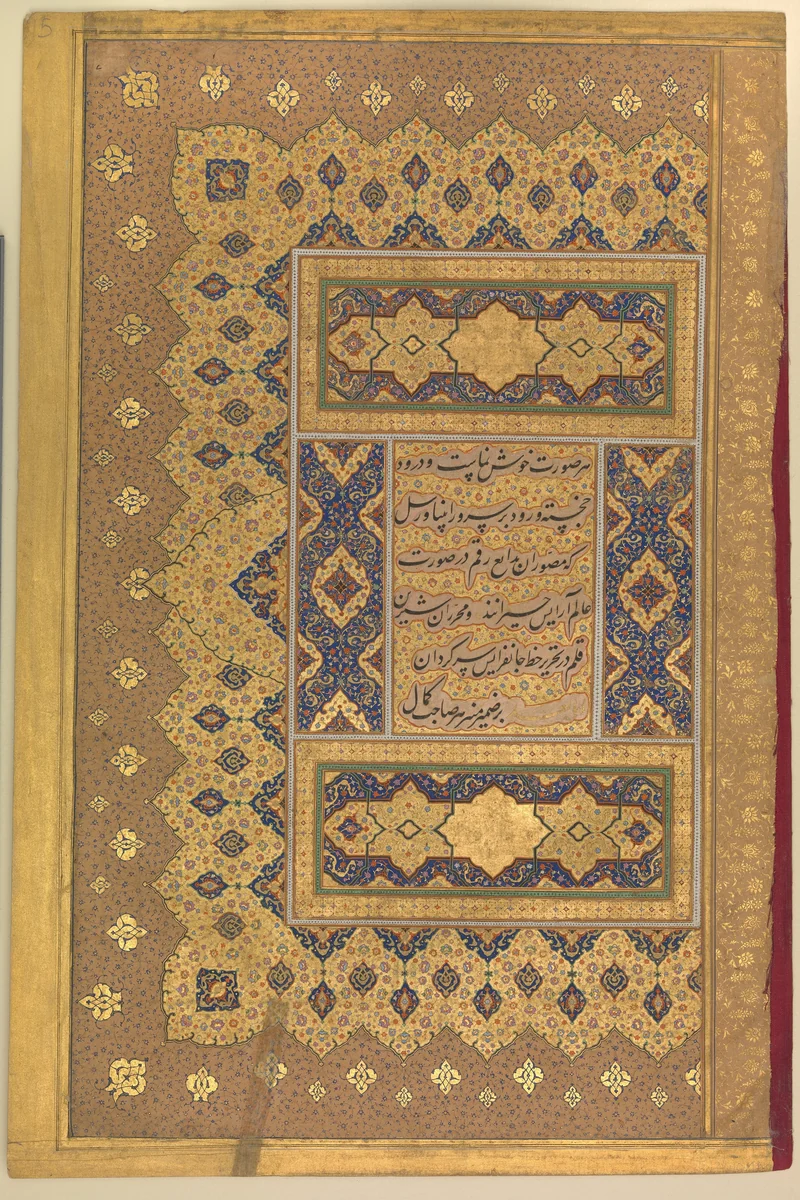 هر صورت خوش نماست و درود
خجسته ورود بر سرور انبیا و رسل
که مصوران بدایع رقم در صورت
عالم آرایش حیرانند و محرران شیرین
قلم در تحریر خط جانفزایش سرگردان
بر ضمیر منیر هر صاحب کمال
5